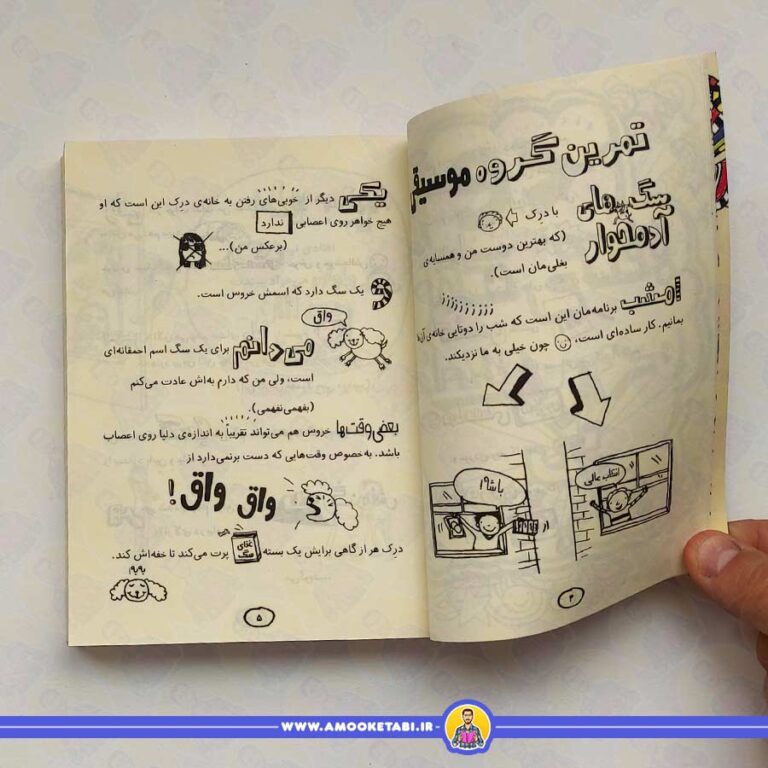 تمرین گروه موسیقی
سگ‌های
آدمخوار
با دِرِک
(که بهترین دوست من و همسایه‌ی
بغلی‌مان است).
امشب برنامه‌مان این است که شب را دوتایی خانه‌ی آن‌ها
بمانیم. کار ساده‌ای است، چون خیلی به ما نزدیکند.
باشه!
انتخاب عالی
۴
یکی دیگر از خوبی‌های رفتن به خانه‌ی دِرِک این است که او
هیچ خواهر روی اعصابی ندارد
(برعکس من)...
و یک سگ دارد که اسمش خروس است.
واق
می‌دانم برای یک سگ اسم احمقانه‌ای
است، ولی من که دارم به‌اش عادت می‌کنم
(بفهمی‌نفهمی).
بعضی وقت‌ها خروس هم می‌تواند تقریباً به اندازه‌ی دلیا روی اعصاب
باشد. به‌خصوص وقت‌هایی که دست برنمی‌دارد از
واق واق!
دِرِک هر از گاهی برایش یک بسته غذای سگ پرت می‌کند تا خفه‌اش کند.
به‌به
۵
WWW.AMOOKETABI.IR